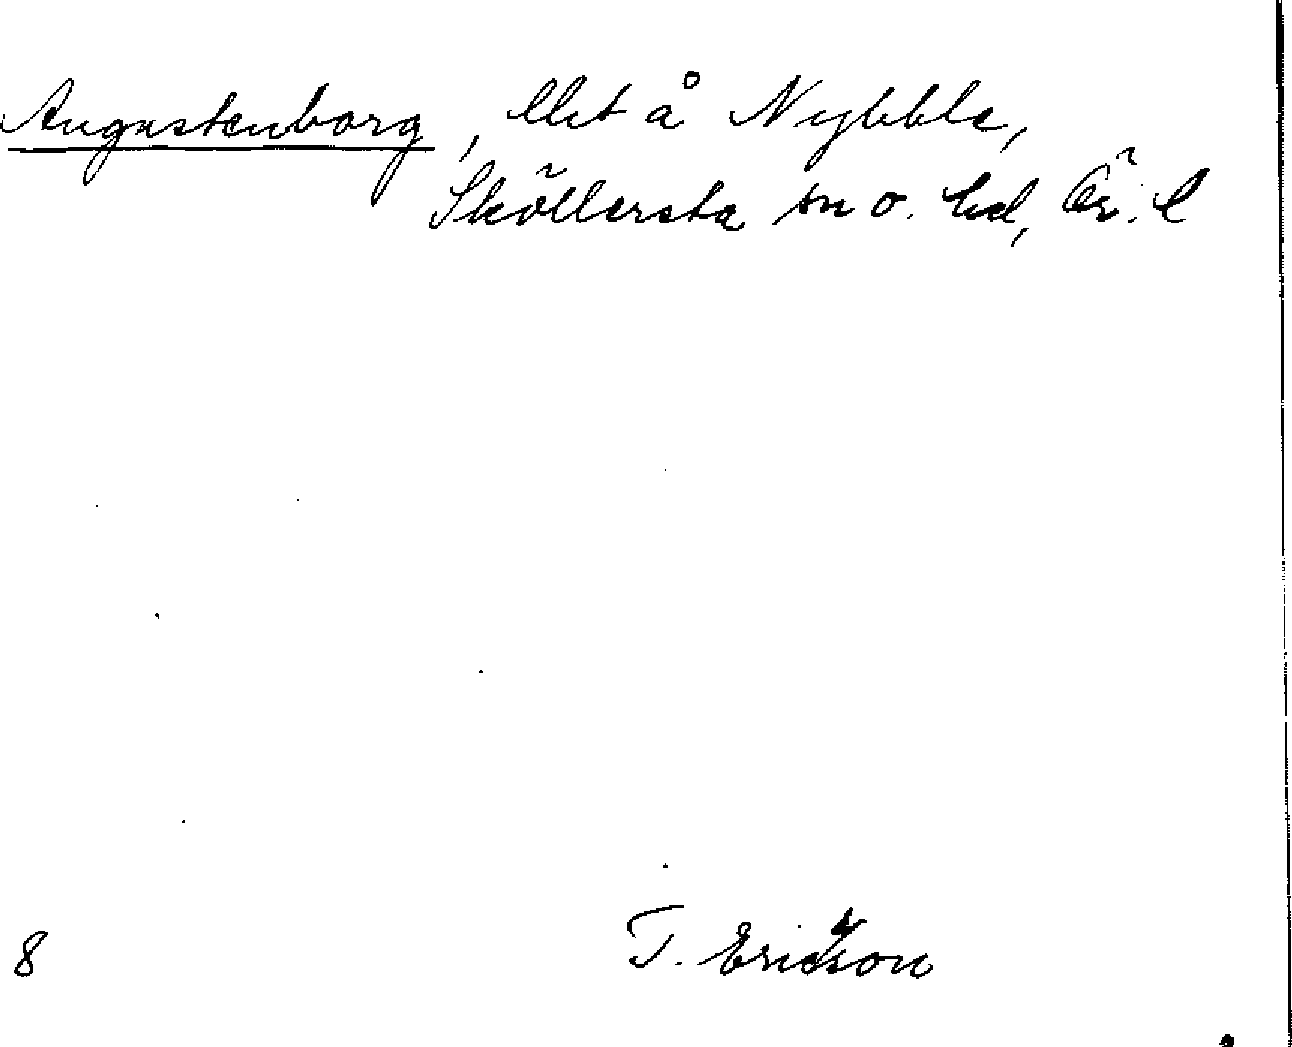 Augustenborg, lht å Nybble,
Sköllersta sn o. hd, Ör. l
8 T. Ericson